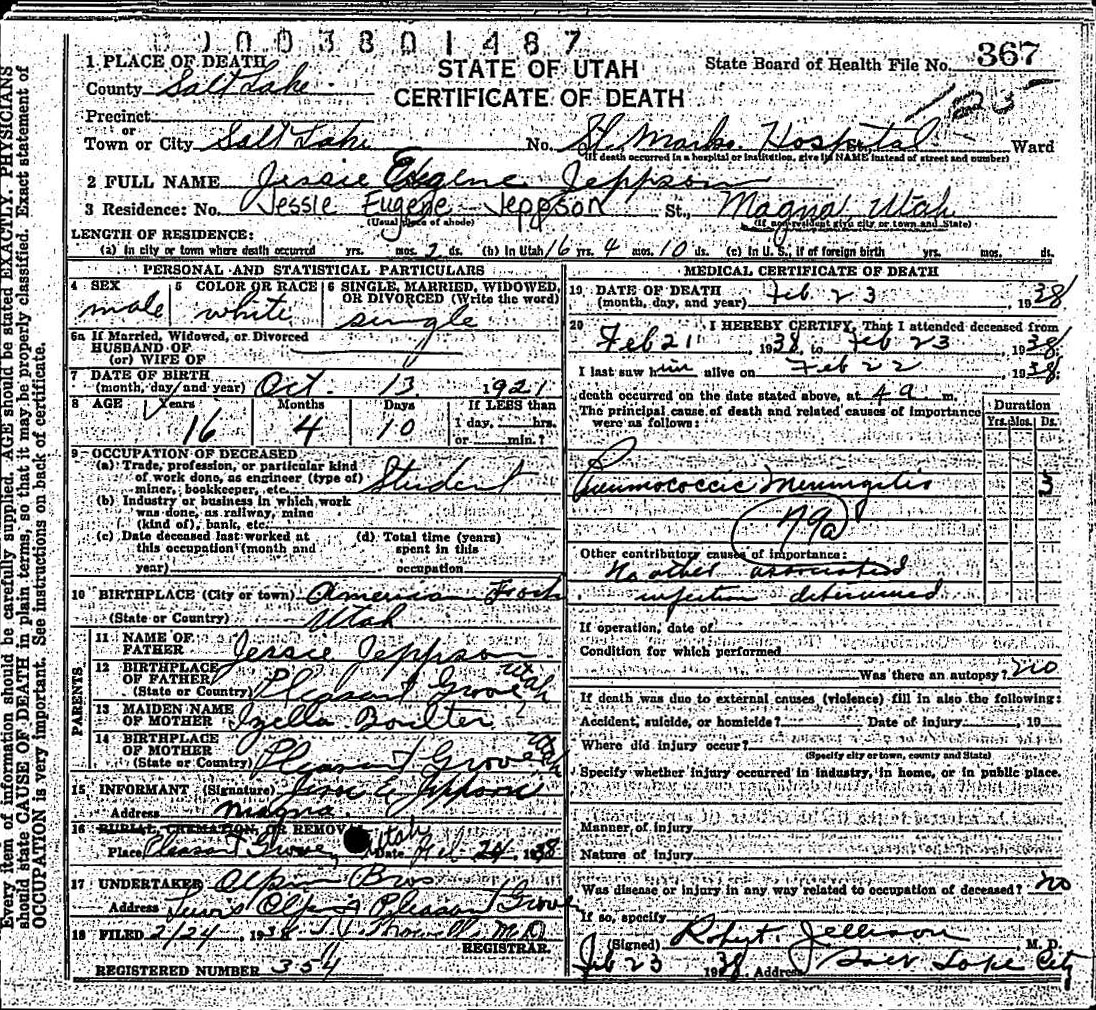 1003801487
STATE OF UTAH
CERTIFICATE OF DEATH
State Board of Health File No. 367
1 PLACE OF DEATH
County Salt Lake
Precinct
or
Town or City Salt Lake No. St. Marks Hospital Ward
(If death occurred in a hospital or institution, give its NAME instead of street and number)
2 FULL NAME Jessie Eugene Jeppson
3 Residence: No. Jessie Eugene Jeppson St., Magna Utah
(Usual place of abode) (If non-resident give city or town and State)
LENGTH OF RESIDENCE:
(a) In city or town where death occurred yrs. mos. 2 ds. (b) In Utah 16 yrs. 4 mos. 10 ds. (c) In U. S., if of foreign birth yrs. mos. ds.
PERSONAL AND STATISTICAL PARTICULARS
4 SEX male
5 COLOR OR RACE white
6 SINGLE, MARRIED, WIDOWED, OR DIVORCED (Write the word) single
6a If Married, Widowed, or Divorced
HUSBAND OF
(or) WIFE OF
7 DATE OF BIRTH
(month, day, and year) Oct. 13 1921
8 AGE Years 16 Months 4 Days 10 If LESS than
1 day, hrs.
or min.?
9 OCCUPATION OF DECEASED
(a) Trade, profession, or particular kind
of work done, as engineer (type of)
miner, bookkeeper, etc. Student
(b) Industry or business in which work
was done, as railway, mine
(kind of), bank, etc.
(c) Date deceased last worked at
this occupation (month and
year)
(d) Total time (years)
spent in this
occupation
10 BIRTHPLACE (City or town) American Fork
(State or Country) Utah
PARENTS
11 NAME OF
FATHER Jessie Jeppson
12 BIRTHPLACE
OF FATHER
(State or Country) Pleasant Grove Utah
13 MAIDEN NAME
OF MOTHER Izella Boulter
14 BIRTHPLACE
OF MOTHER
(State or Country) Pleasant Grove Utah
15 INFORMANT (Signature)
Address Magna
16 BURIAL, CREMATION, OR REMOVAL Utah
Place Pleasant Grove, Date Feb. 24, 1938
17 UNDERTAKER Olpin Bros
Address Pleasant Grove
18 FILED 2/24, 1938 M.D.
REGISTRAR.
REGISTERED NUMBER 354
MEDICAL CERTIFICATE OF DEATH
19 DATE OF DEATH
(month, day, and year) Feb. 23 1938
20 I HEREBY CERTIFY, That I attended deceased from
Feb 21, 1938, to Feb 23, 1938;
I last saw him alive on Feb 22, 1938;
death occurred on the date stated above, at 4 a m.
The principal cause of death and related causes of importance
were as follows:
Duration
Yrs. Mos. Ds.
Pneumococcic Meningitis 3
79a
Other contributory causes of importance:
No other associated
infection determined
If operation, date of
Condition for which performed
Was there an autopsy? no
If death was due to external causes (violence) fill in also the following:
Accident, suicide, or homicide? Date of injury , 19
Where did injury occur?
(Specify city or town, county and State)
Specify whether injury occurred in industry, in home, or in public place.
Manner of injury
Nature of injury
Was disease or injury in any way related to occupation of deceased? no
If so, specify
(Signed) Robt. Jellison M. D.
Feb 23 1938 Address Salt Lake City
Every item of information should be carefully supplied. AGE should be stated EXACTLY. PHYSICIANS
should state CAUSE OF DEATH in plain terms, so that it may be properly classified. Exact statement of
OCCUPATION is very important. See instructions on back of certificate.